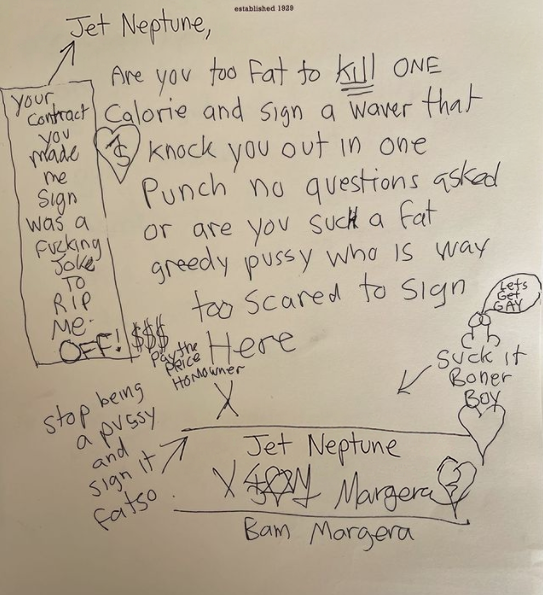 established 1929
Jet Neptune,
Are you too Fat to kill ONE
Calorie and sign a waver that
knock you out in one
Punch no questions asked
or are you such a fat
greedy pussy who is way
too Scared to Sign
Here
X
your
contract
you
made
me
Sign
was a
Fucking
Joke
TO
RIP
ME.
OFF!
$
$$$
Pay the
PRICE
HOMOWNER
Lets
Get
GAY
Suck it
Boner
Boy
Stop being
a pussy
and
sign it
fatso.
Jet Neptune
X
Margera
Bam Margera